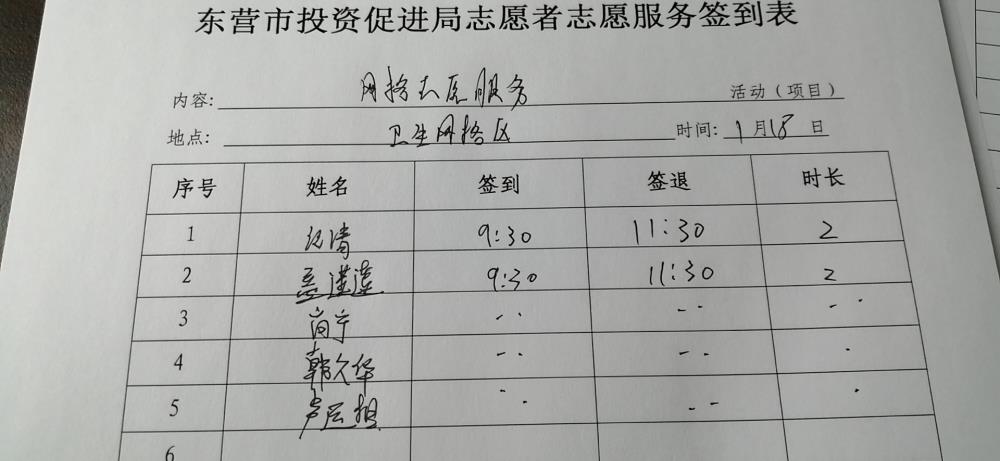 东营市投资促进局志愿者志愿服务签到表
内容: 网格志愿服务 活动（项目）
地点: 卫生网格区 时间: 1月18日
序号 姓名 签到 签退 时长
1 纪清 9:30 11:30 2
2 9:30 11:30 2
3 高宁 -· -· -·
4 韩久华 -· -· ·
5 -· -· ·
6